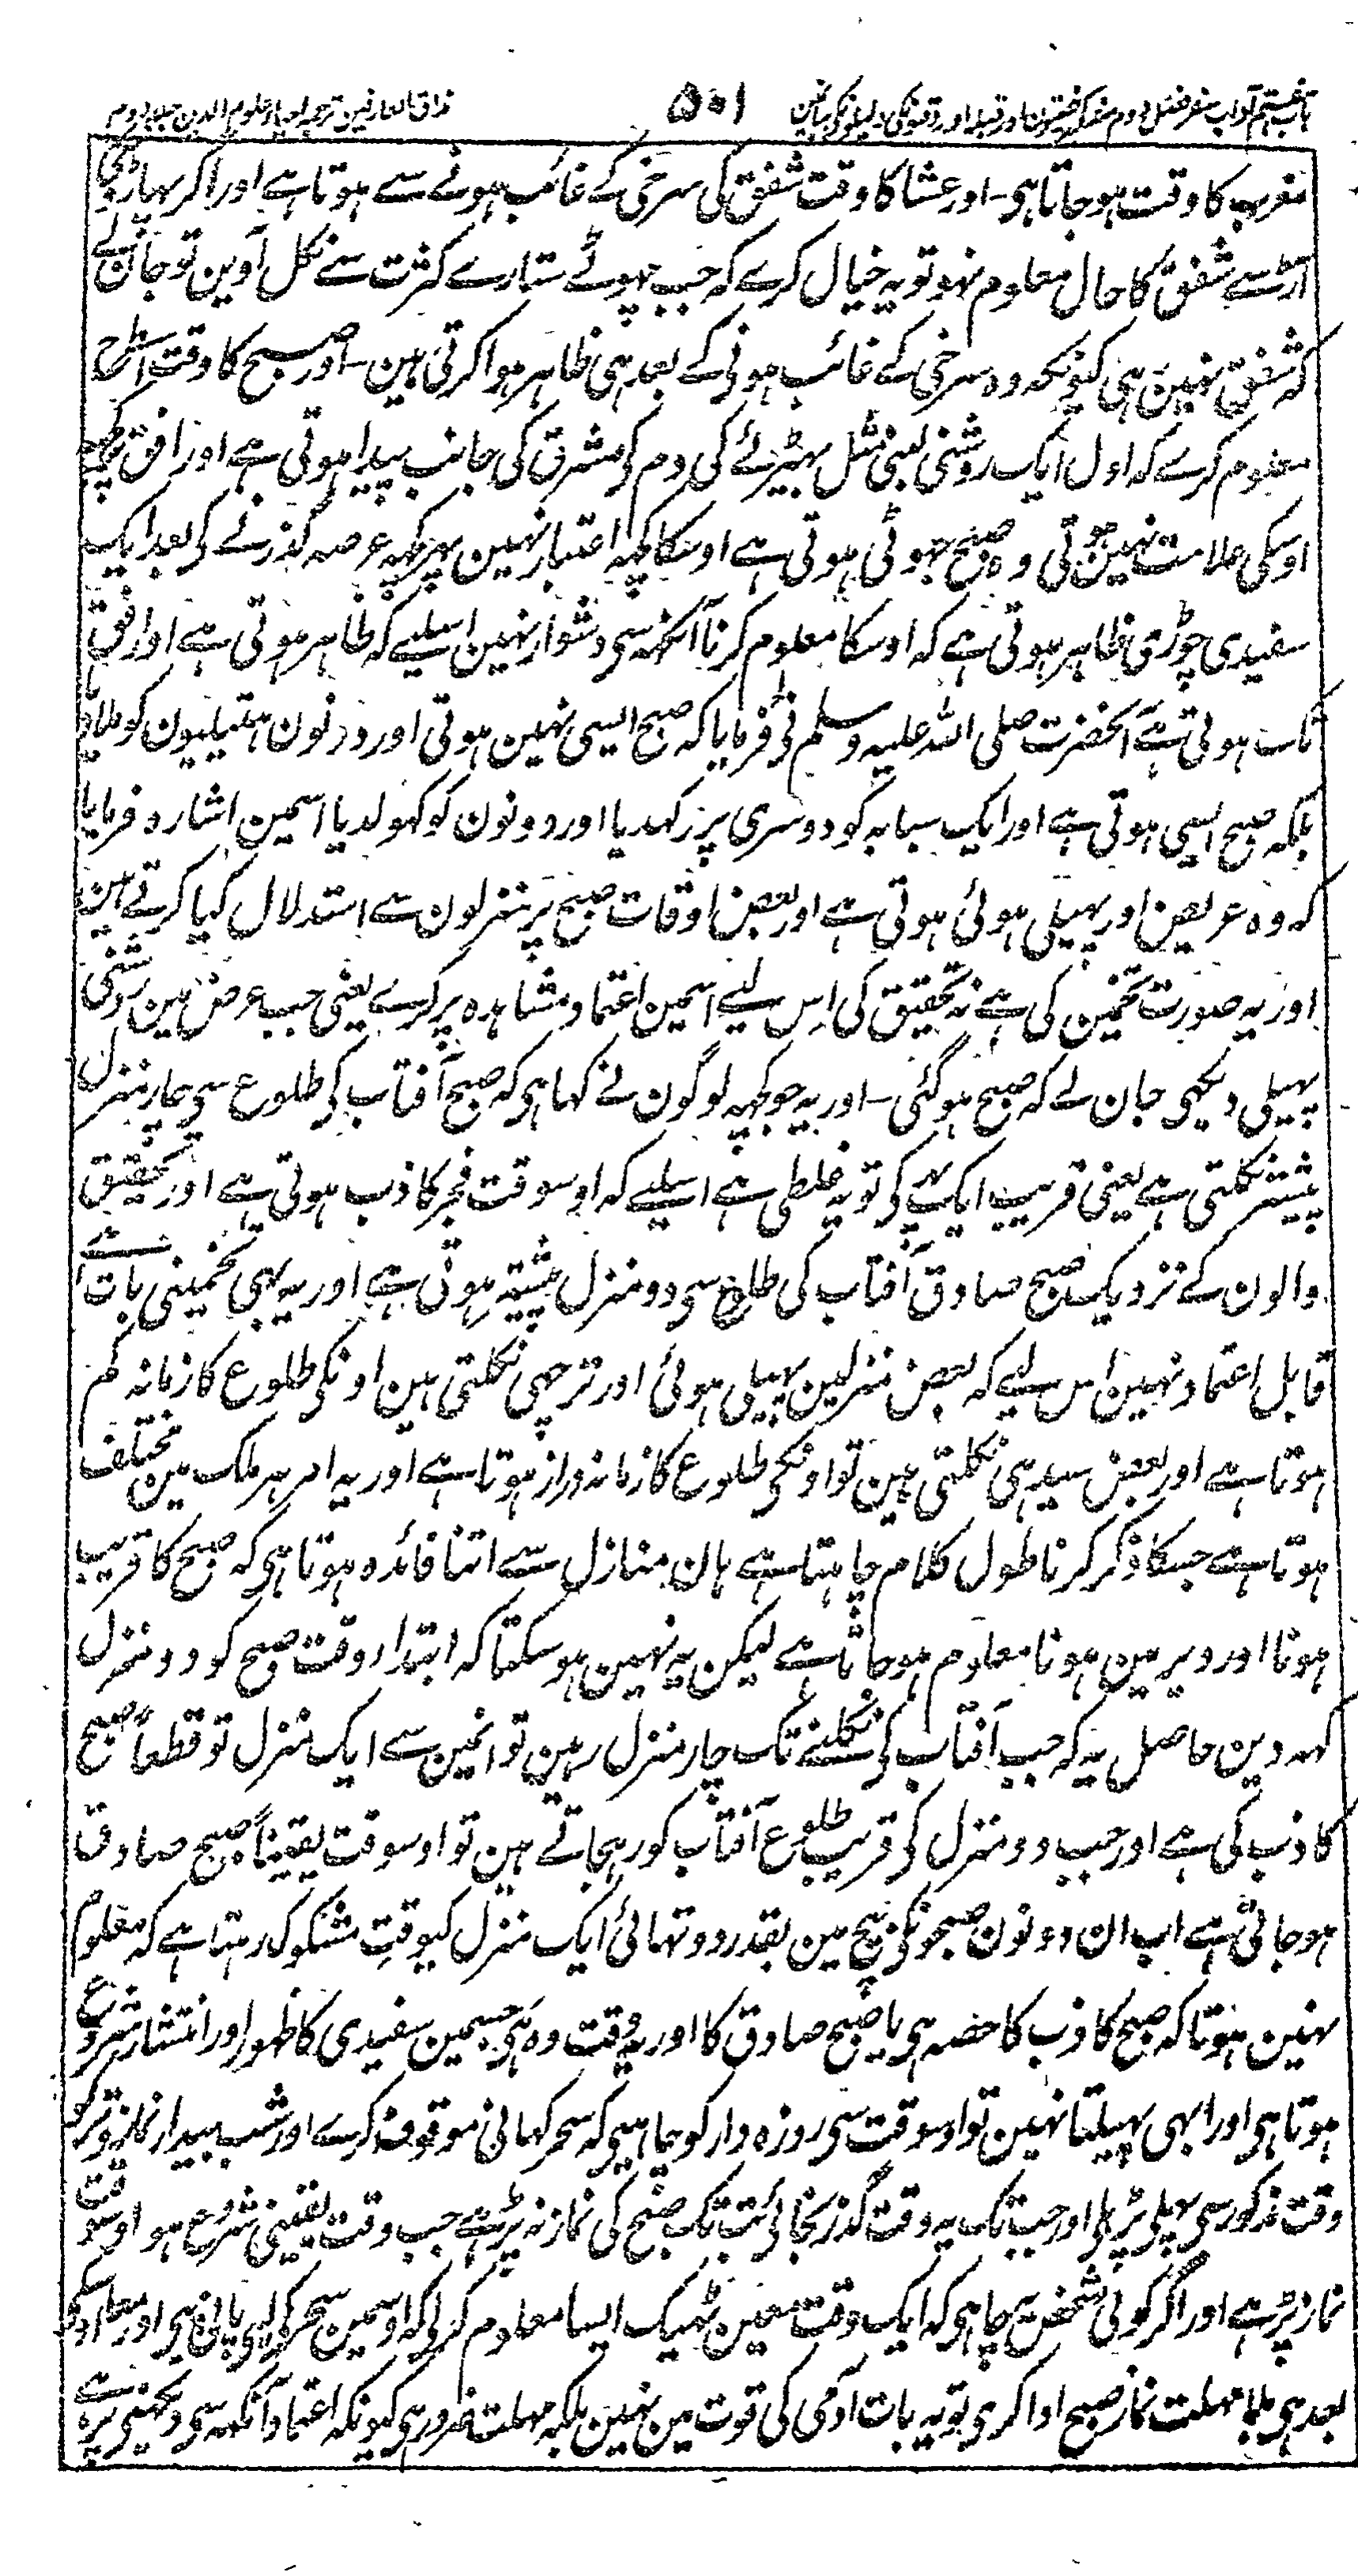 باب ہفتم آداب سفر فصل دوم سفر کی رخصتون اور قبلہ اور وقتونکی دلیلونکی بیانمین ۵۰۱ مذاق العارفین ترجمہ احیاء علوم الدین جلد دوم
مغرب کا وقت ہو جاتا ہی۔ اور عشا کا وقت شفق کی سرخی کے غائب ہونے سے ہوتا ہے اور اگر پہاڑونکی
آڑسے شفق کا حال معلوم نہو تو یہ خیال کرے کہ جب چہوٹے ستارے کثرت سے نکل آوین تو جان لے
کہ شفق نہین ہی کیونکہ وہ سرخی کے غائب ہونیکے بعد ہی ظاہر ہوا کرتی ہین۔ اور صبح کا وقت اسطرح
معلوم کرے کہ اول ایک روشنی لنبی مثل بہیڑئے کی دم کی مشرق کی جانب پیدا ہوتی ہے اور افق پر کچہہ
اوسکی علامت نہین ہوتی وہ صبح جہوٹی ہوتی ہے اوسکا کچہہ اعتبار نہین پہر کچہہ عرصہ گذرنے کی بعد ایک
سفیدی چوڑی ظاہر ہوتی ہے کہ اوسکا معلوم کرنا آنکہہ سی دشوار نہین اسلیے کہ ظاہر ہوتی ہے اور افق
تک ہوتی ہے آنحضرت صلی اللہ علیہ وسلم نی فرمایا کہ صبح ایسی نہین ہوتی اور دونون ہتیلیون کو ملا دیا
بلکہ صبح ایسی ہوتی ہے اور ایک سبابہ کو دوسری پر رکہدیا اور دونون کو کہولدیا اسمین اشارہ فرمایا
کہ وہ عریض اور پہیلی ہوئی ہوتی ہے اور بعض اوقات صبح پر منزلون سے استدلال کیا کرتے ہین
اور یہ صورت تخمین کی ہے نہ تحقیق کی اِس لیے اسمین اعتماد مشاہدہ پر کرے یعنی جب عرض مین روشنی
پہیلی دیکہی جان لے کہ صبح ہو گئی۔ اور یہ جو کچہہ لوگون نے کہا ہی کہ صبح آفتاب کی طلوع سی چار منزل
پیشتر نکلتی ہے یعنی قریب ایک پہر کی تو یہ غلطی ہے اسلیے کہ اوسوقت فجر کاذب ہوتی ہے اور تحقیق
والون کے نزدیک صبح صادق آفتاب کی طلوع سی دو منزل پیشتر ہوتی ہے اور یہ بہی تخمینی بات ہے
قابل اعتماد نہین اس لیے کہ بعض منزلین پہیلی ہوئی اور ترچہی نکلتی ہین اونکی طلوع کا زمانہ کم
ہوتا ہے اور بعض سیدہی نکلتی ہین تو اونکی طلوع کا زمانہ دراز ہوتا ہے اور یہ امر ہر ملک مین مختلف
ہوتا ہے جسکا ذکر کرنا طول کلام چاہتا ہے ہان منازل سے اتنا فائدہ ہوتا ہی کہ صبح کا قریب
ہونا اور دیر مین ہونا معلوم ہو جاتا ہے لیکن یہ نہین ہو سکتا کہ ابتداء وقت صبح کو دو منزل
کہہ دین حاصل یہ کہ جب آفتاب کی نکلنے تک چار منزل رہین تو انمین سے ایک منزل تو قطعاً صبح
کاذب کی ہے اور جب دو منزل کی قریب طلوع آفتاب کو رہجاتے ہین تو اوسوقت یقیناً صبح صادق
ہوجاتی ہے اب ان دونون صبحونکی بیچ مین بقدر دو تہائی ایک منزل کیوقت مشکوک رہتا ہے کہ معلوم
نہین ہوتا کہ صبح کاذب کا حصہ ہی یا صبح صادق کا اور یہ وقت وہ ہی جسمین سفیدی کا ظہور اور انتشار شروع
ہوتا ہی اور ابہی پہیلتا نہین تو اوسوقت سی روزہ دار کو چاہیی کہ سحر کہانی موقوف کرے اور شب بیدار نماز وتر کو
وقت مذکور سی پہلی پڑہلی اور جب تک یہ وقت گذر نجائی تب تک صبح کی نماز نہ پڑہے جب وقت یقینی شروع ہو اوسوقت
نماز پڑہے اور اگر کوئی شخص یہ چاہی کہ ایک وقت معین ٹہیک ایسا معلوم کر لی کہ اوسمین سحر کی لیی پانی پیی اور معاً اوسکی
بعد ہی بلا مہلت نماز صبح ادا کری تو یہ بات آدمی کی قوت مین نہین بلکہ مہلت ضرور ہی کیونکہ اعتماد آنکہہ سی دیکہنی پر ہے